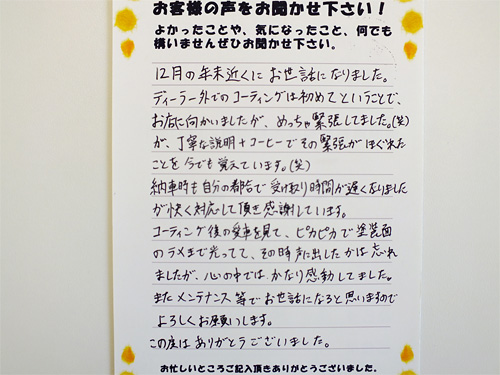 お客様の声をお聞かせ下さい！
よかったことや、気になったこと、何でも
構いませんぜひお聞かせ下さい。
12月の年末近くにお世話になりました。
ディーラー外でのコーティングは初めてということで、
お店に向かいましたが、めっちゃ緊張してました。(笑)
が、丁寧な説明+コーヒーでその緊張がほぐれた
ことを今でも覚えています。(笑)
納車時も自分の都合で受け取り時間が遅くなりました
が快く対応して頂き感謝しています。
コーティング後の愛車を見て、ピカピカで塗装面
のラメまで光ってて、その時声に出したかは忘れ
ましたが、心の中ではかなり感動してました。
またメンテナンス等でお世話になると思いますので
よろしくお願いします。
この度はありがとうございました。
お忙しいところご記入頂きありがとうございました。